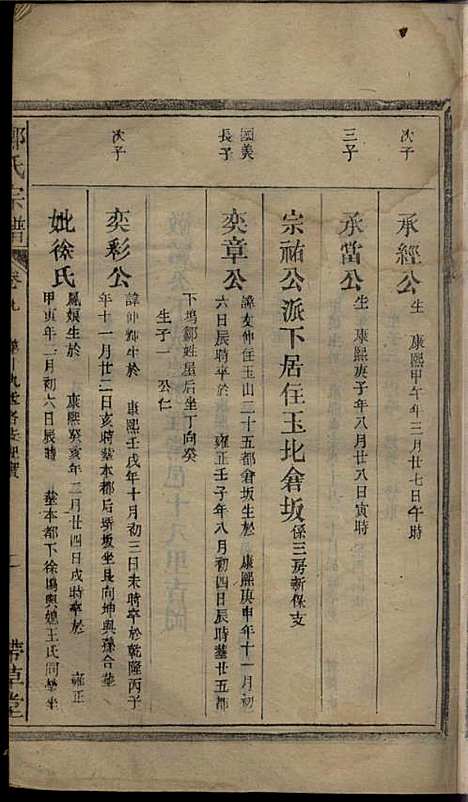 次子
承經公
生 康熙甲午年三月廿七日午時
三子
承當公
生 康熙庚子年八月廿八日寅時
宗祐公派下居住玉北倉坂係三房新保支
國美
長子
奕章公
諱友仲住玉山二十五都倉坂生於 康熙庚申年十一月初
六日辰時卒於 雍正壬子年八月初四日辰時葬廿五都
下塢鄒姓屋后坐丁向癸
生子一 公仁
次子
奕彩公
諱仲輝生於 康熙壬戌年十月初三日未時卒於乾隆丙子
年十一月廿二日亥時葬本都后塝坂坐艮向坤與孫合葬
妣徐氏
鳳娘生於 康熙癸亥年二月廿四日戌時卒於 雍正
甲寅年二月初六日辰時 葬本都下徐塢與媳王氏同塋坐
鄭氏宗譜
卷九